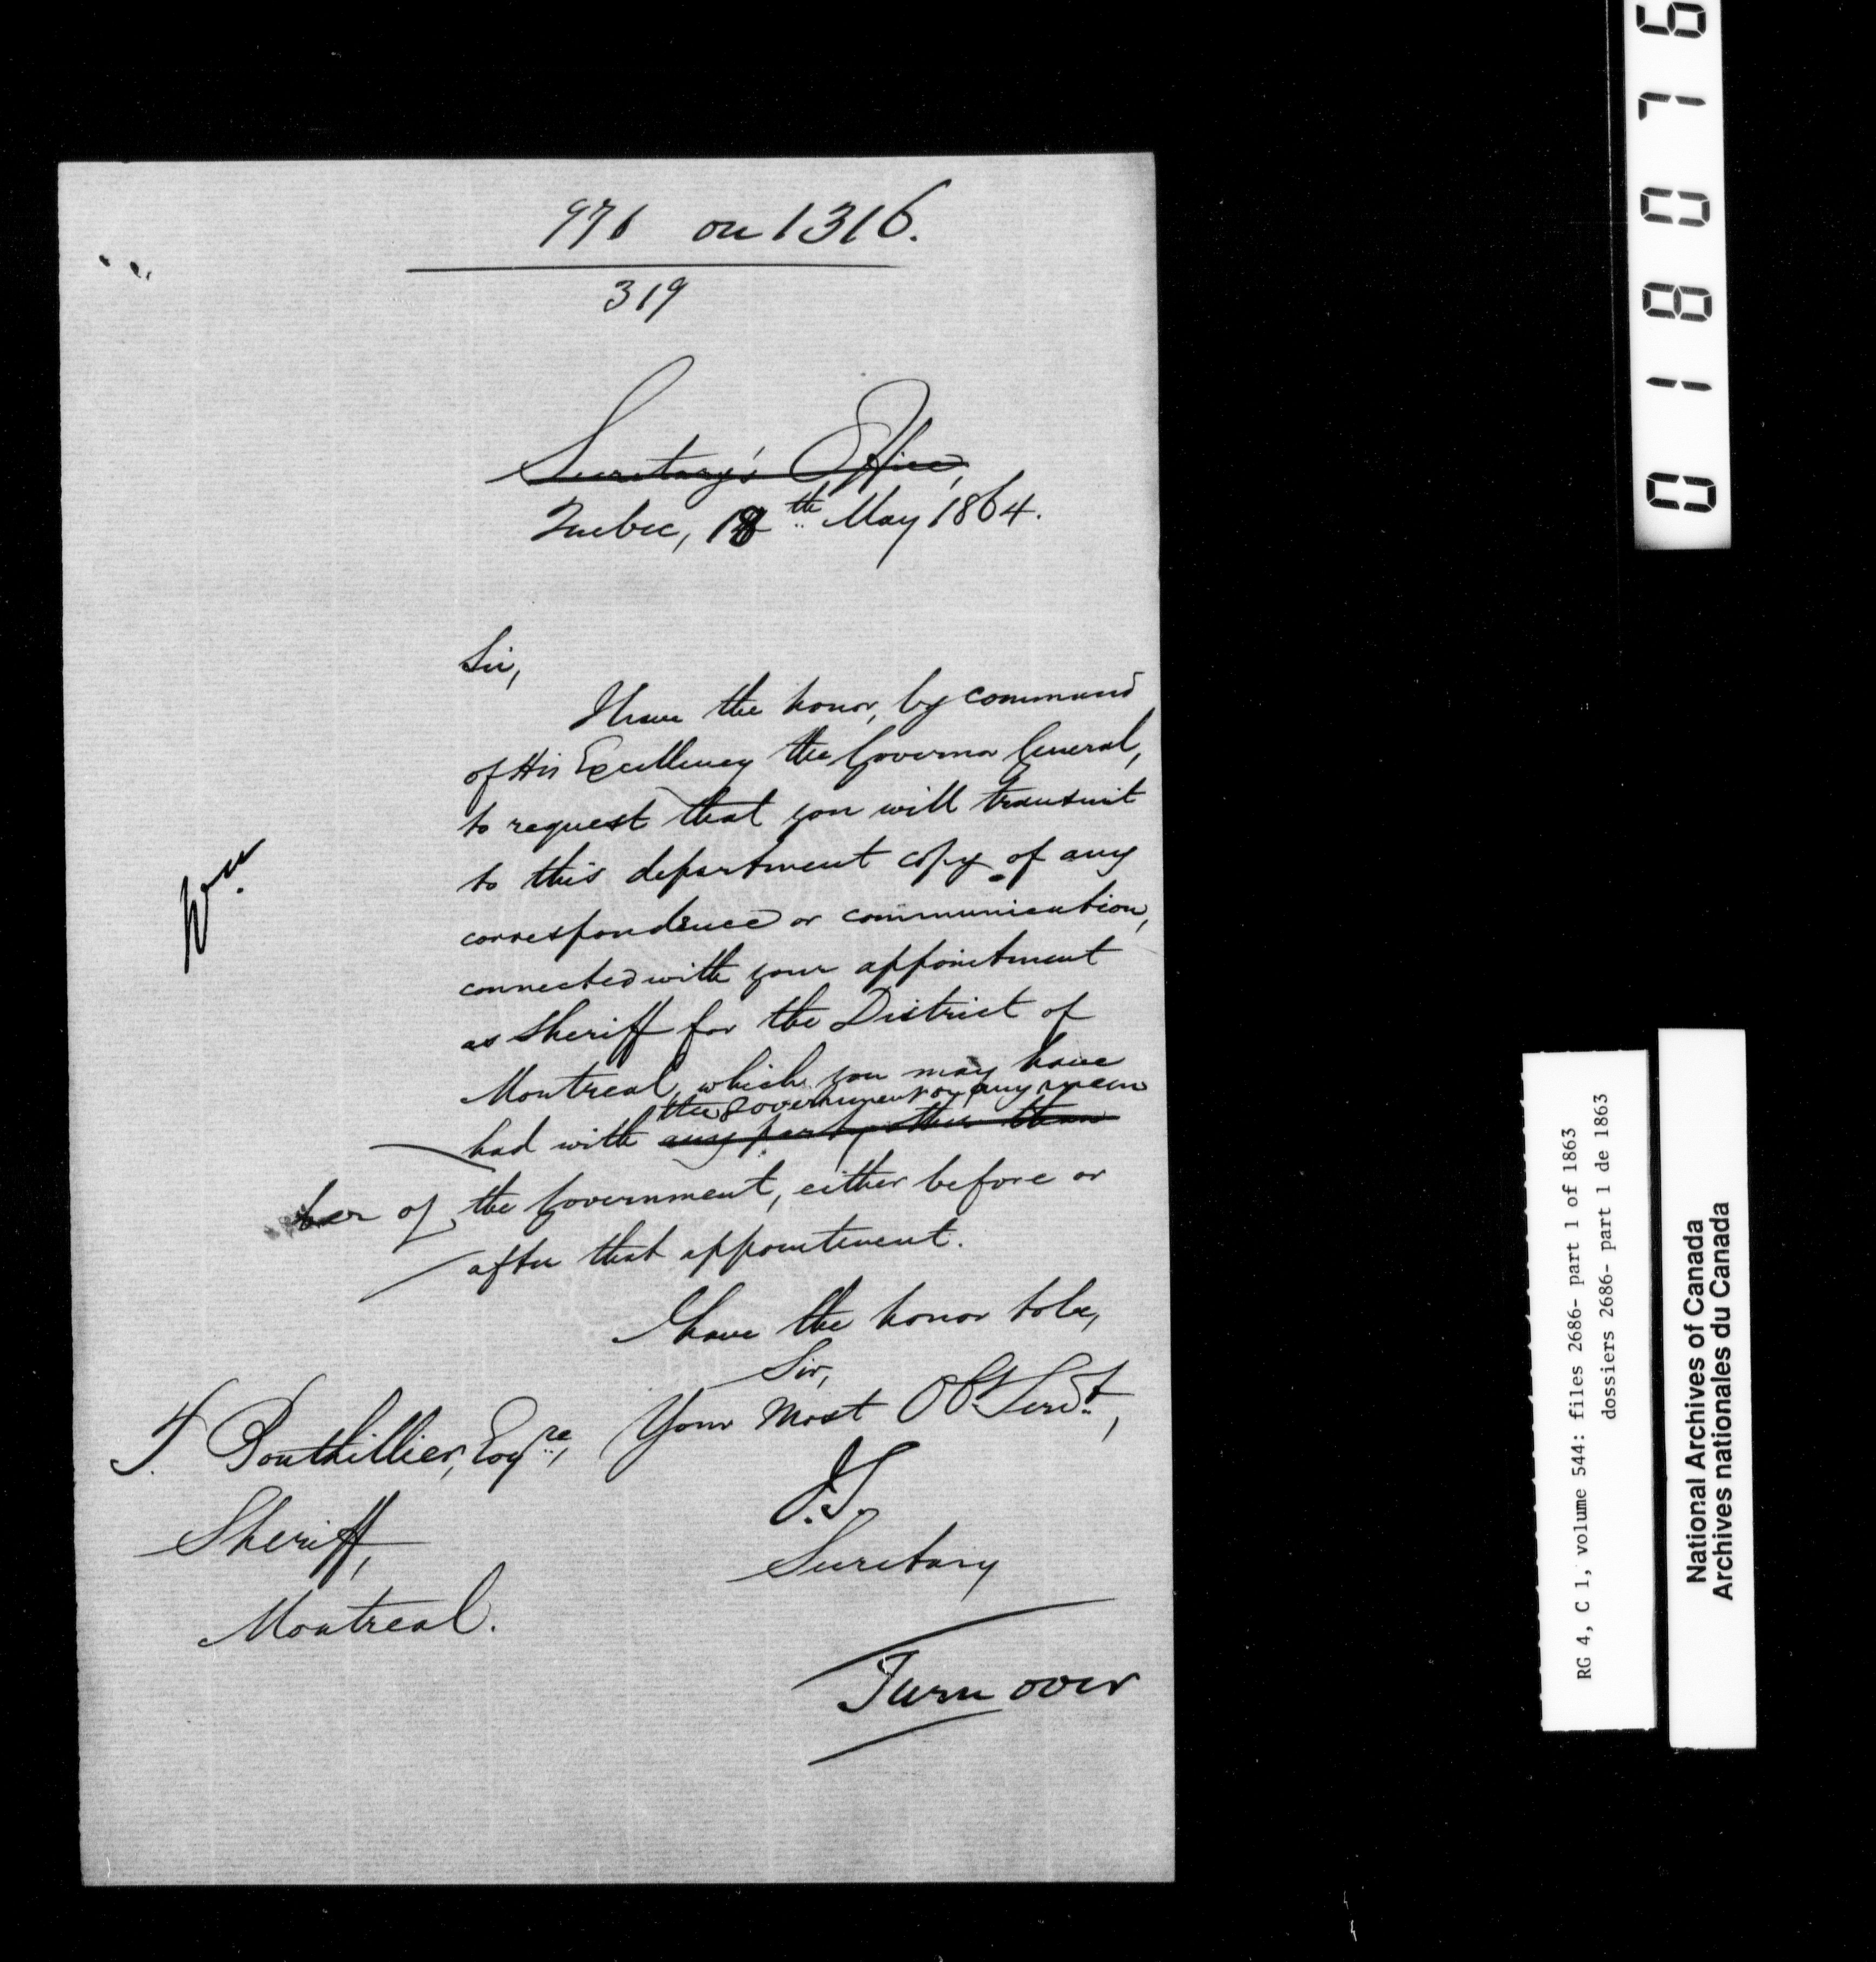 971 on 1316.
319
Secretary's Office,
Quebec, 18th May 1864.
Sir,
I have the honor, by command
of His Excellency the Governor General,
to request that you will transmit
to this department copy of any
correspondence or communication,
connected with your appointment
as Sheriff for the District of
Montreal, which you may have
the Government or any mem
had with any party other than
ber of the Government, either before or
after that appointment.
I have the honor to be,
Sir,
Your Most Obt. Servt.,
J.S.
Secretary
T. Bouthillier, Esqre,
Sheriff,
Montreal.
Turn over
018076
RG 4, C 1, volume 544: files 2686- part 1 of 1863
dossiers 2686- part 1 de 1863
National Archives of Canada
Archives nationales du Canada